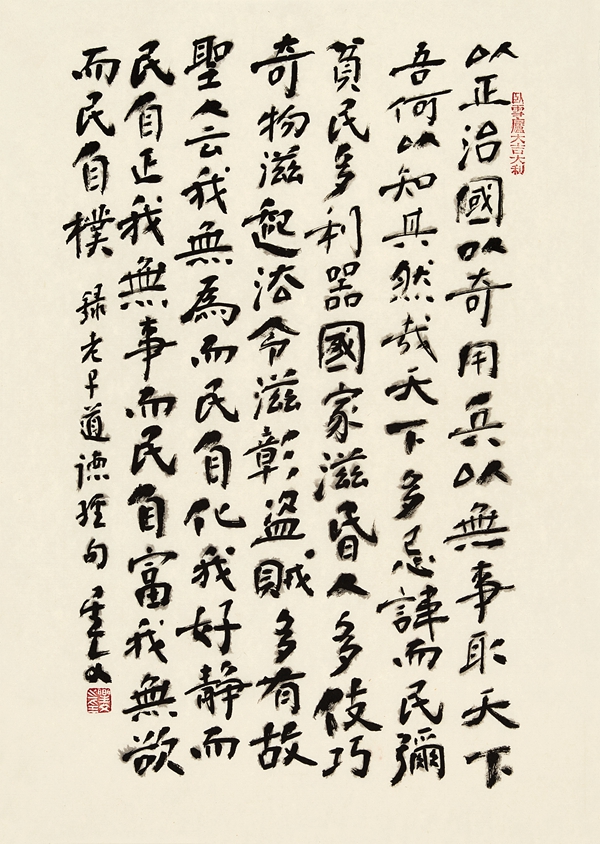 大吉大利
以正治國以奇用兵以無事取天下
吾何以知其然哉天下多忌諱而民彌
貧民多利器國家滋昏人多伎巧
奇物滋起法令滋彰盜賊多有故
聖人云我無為而民自化我好靜而
民自正我無事而民自富我無欲
而民自樸 錄老子道德經句